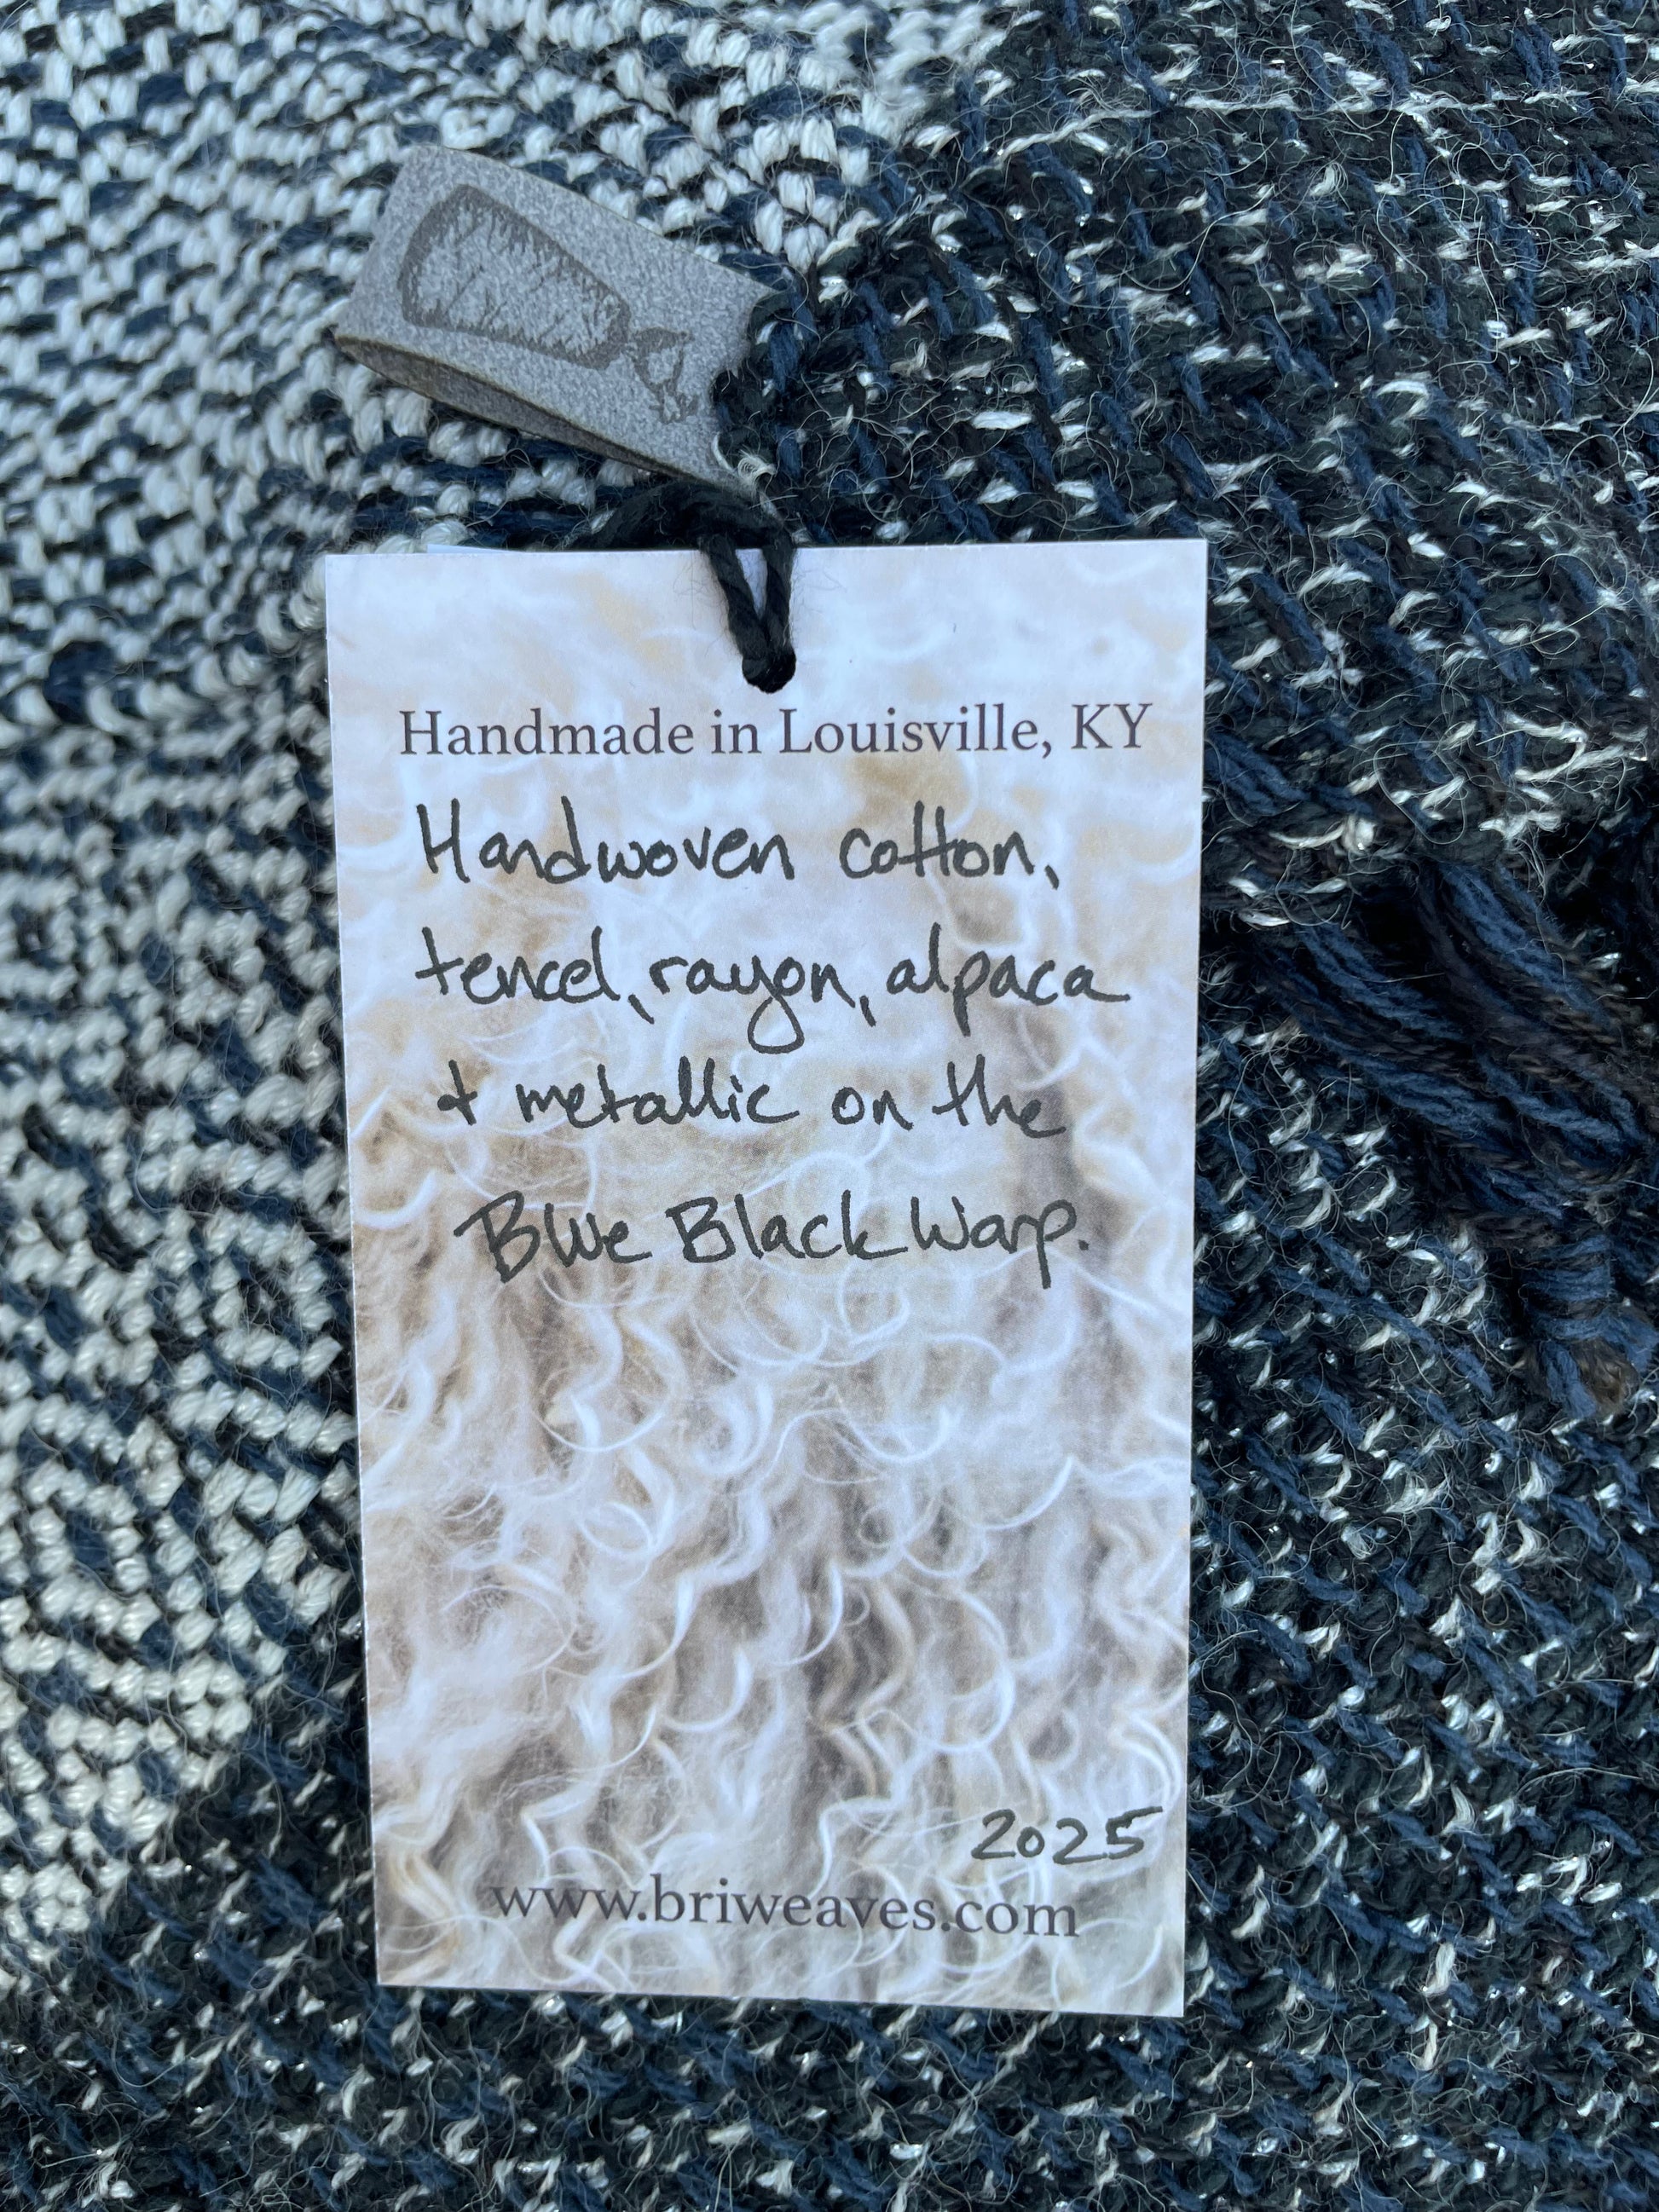 Handmade in Louisville, KY
Handwoven cotton,
tencel, rayon, alpaca
+ metallic on the
Blue Black Warp.
2025
www.briweaves.com